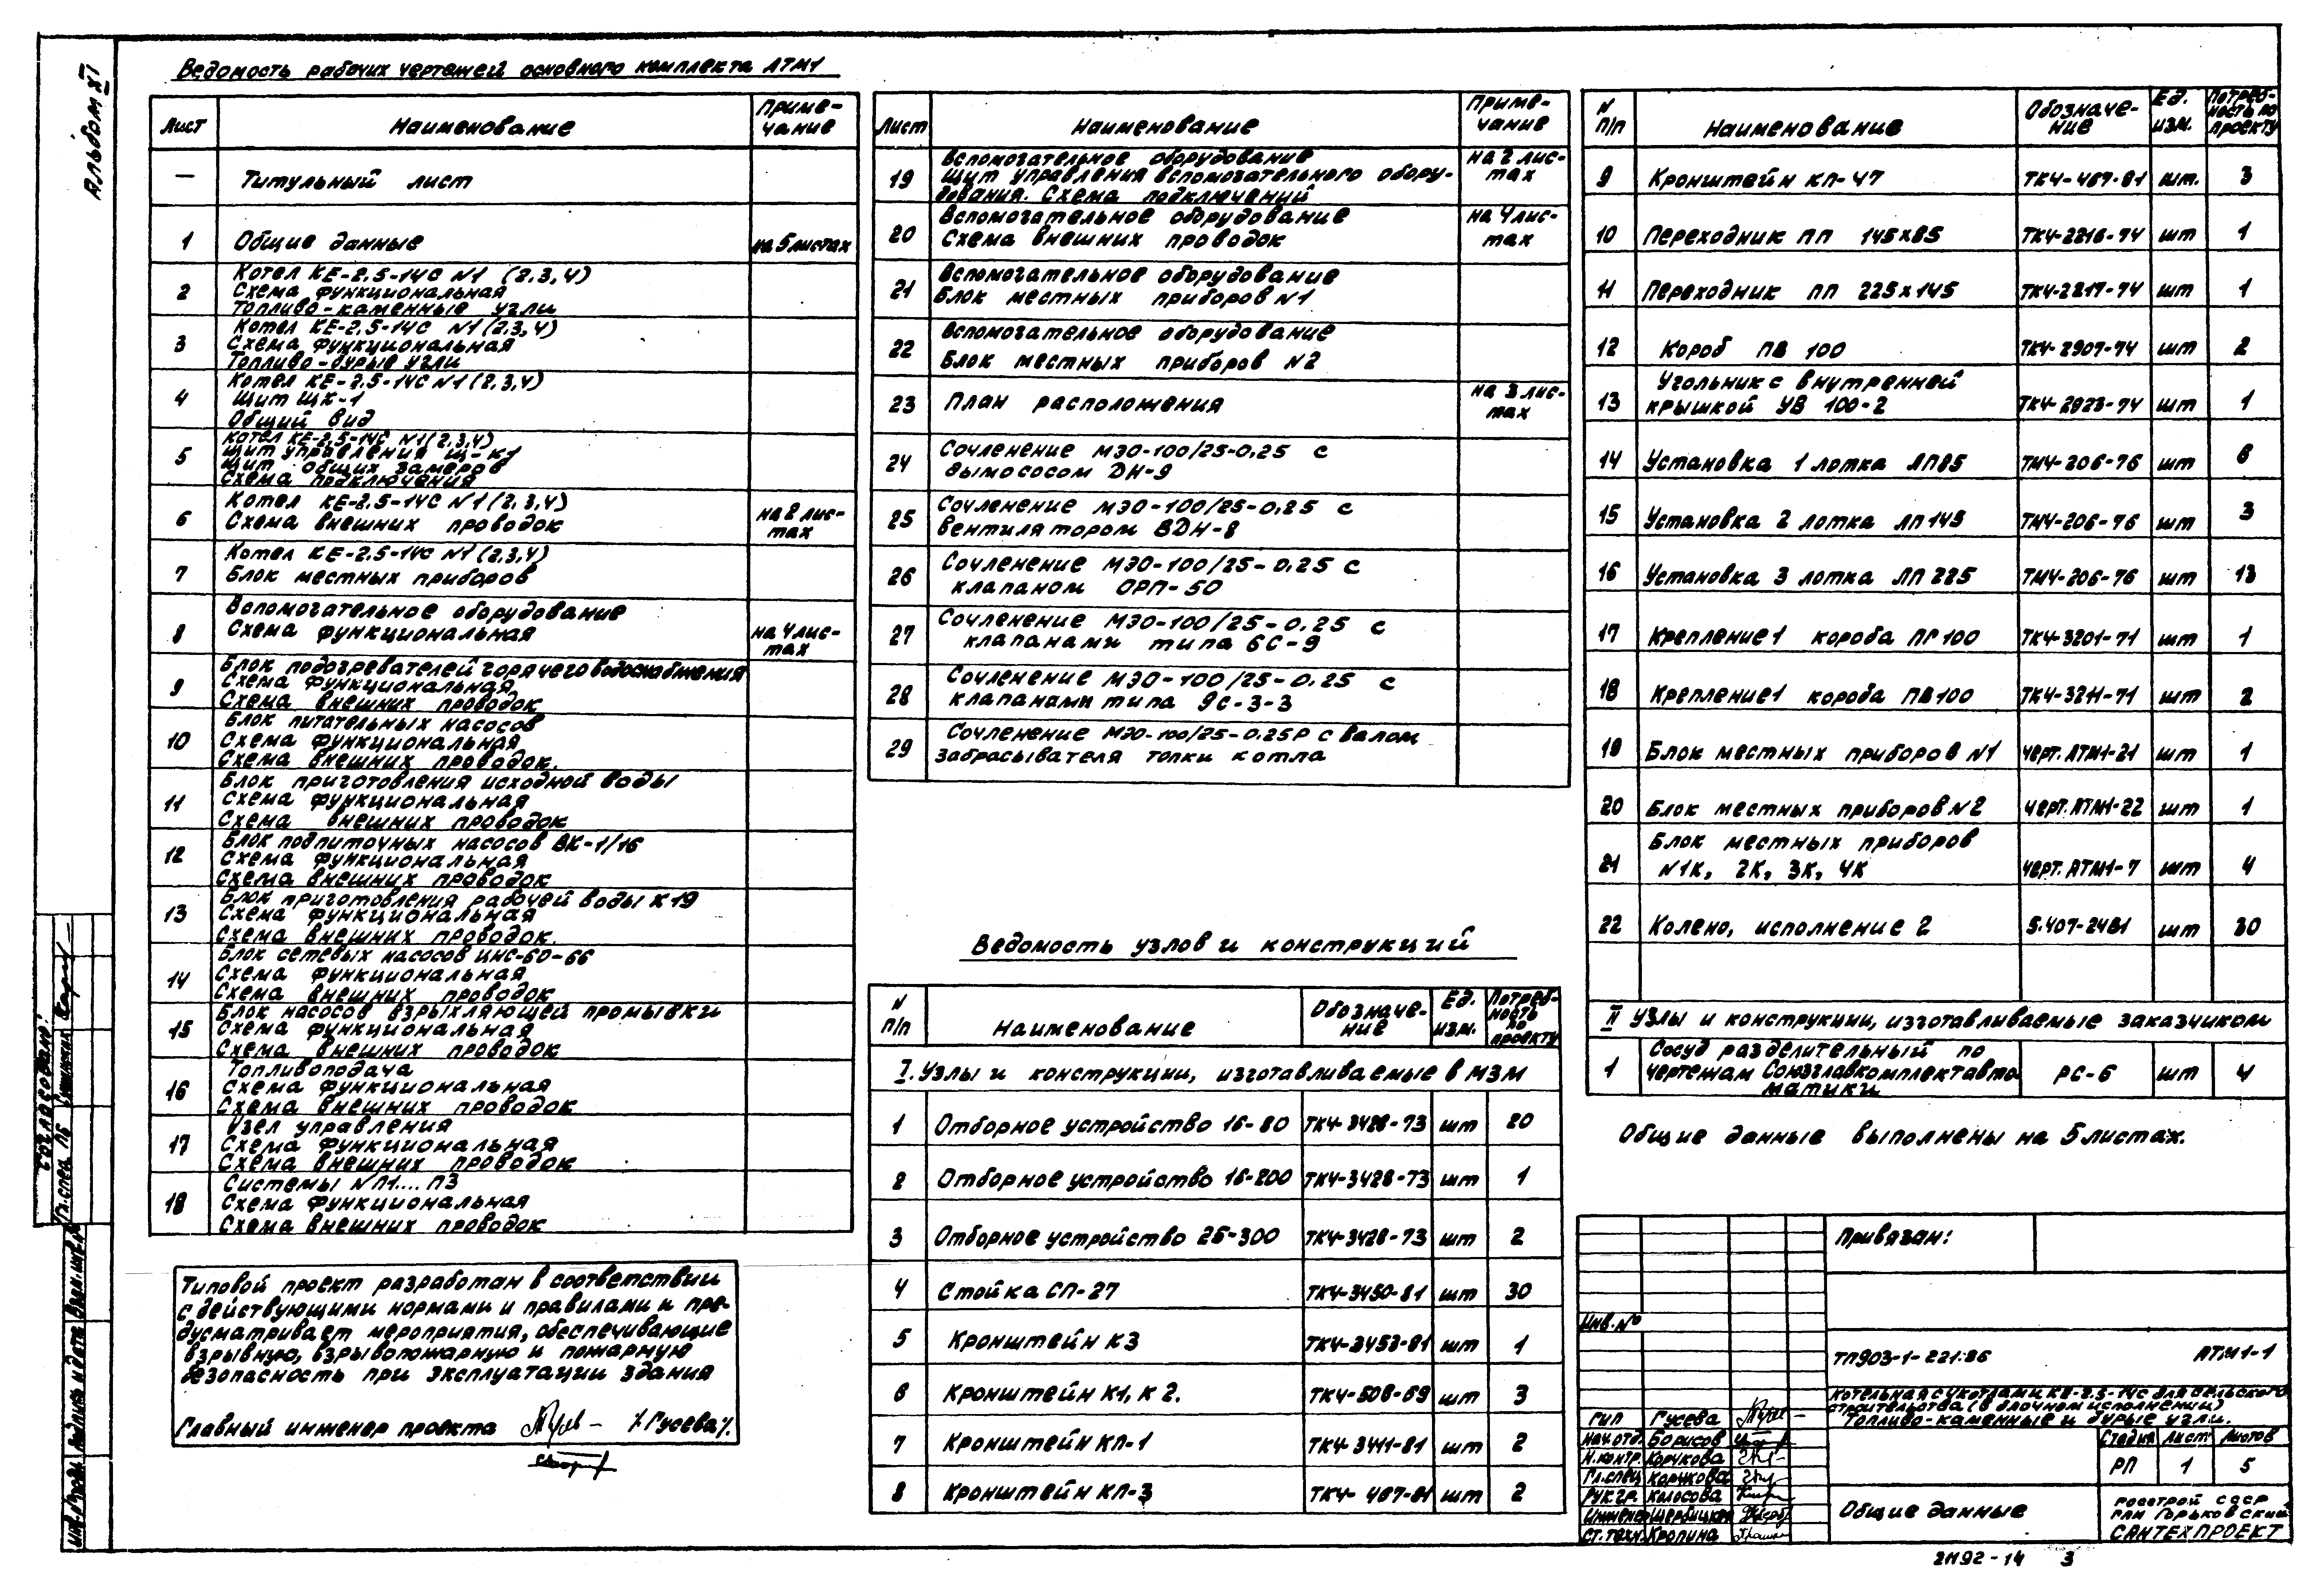 Альбом XI
Ведомость рабочих чертежей основного комплекта АТМ1
Лист Наименование Приме-
чание
— Титульный лист
1 Общие данные на 5 листах
Котел КЕ-2,5-14С №1 (2,3,4)
2 Схема функциональная
Топливо-каменные угли
Котел КЕ-2,5-14С №1 (2,3,4)
3 Схема функциональная
Топливо-бурые угли
Котел КЕ-2,5-14С №1 (2,3,4)
4 Щит ЩК-1
Общий вид
Котел КЕ-2,5-14С №1 (2,3,4)
5 Щит управления Щ-К1
Щит общих замеров
Схема подключения
Котел КЕ-2,5-14С №1 (2,3,4)
6 Схема внешних проводок на 2 лис-
тах
Котел КЕ-2,5-14С №1 (2,3,4)
7 Блок местных приборов
Вспомогательное оборудование
8 Схема функциональная на 4 лис-
тах
Блок подогревателей горячего водоснабжения
9 Схема функциональная
Схема внешних проводок
Блок питательных насосов
10 Схема функциональная
Схема внешних проводок.
Блок приготовления исходной воды
11 Схема функциональная
Схема внешних проводок
Блок подпиточных насосов ВК-1/16
12 Схема функциональная
Схема внешних проводок
Блок приготовления рабочей воды К19
13 Схема функциональная
Схема внешних проводок.
Блок сетевых насосов ЦНС-60-66
14 Схема функциональная
Схема внешних проводок
Блок насосов взрыхляющей промывки
15 Схема функциональная
Схема внешних проводок
Топливоподача
16 Схема функциональная
Схема внешних проводок
Узел управления
17 Схема функциональная
Схема внешних проводок
Системы №П1....П3
18 Схема функциональная
Схема внешних проводок
Типовой проект разработан в соответствии
с действующими нормами и правилами и пре-
дусматривает мероприятия, обеспечивающие
взрывную, взрывопожарную и пожарную
безопасность при эксплуатации здания
Главный инженер проекта /Гусева/.
Лист Наименование Приме-
чание
Вспомогательное оборудование на 2 лис-
19 Щит управления вспомогательного обору- тах
дования. Схема подключений
Вспомогательное оборудование на 4 лис-
20 Схема внешних проводок тах
Вспомогательное оборудование
21 Блок местных приборов №1
Вспомогательное оборудование
22 Блок местных приборов №2
23 План расположения на 3 лис-
тах
24 Сочленение МЭО-100/25-0,25 с
дымососом ДН-9
25 Сочленение МЭО-100/25-0,25 с
вентилятором ВДН-8
26 Сочленение МЭО-100/25-0,25 с
клапаном ОРП-50
27 Сочленение МЭО-100/25-0,25 с
клапанами типа 6С-9
28 Сочленение МЭО-100/25-0,25 с
клапанами типа 9с-3-3
29 Сочленение МЭО-100/25-0,25Р с валом
забрасывателя топки котла
Ведомость узлов и конструкций
N
п/п Наименование Обозначе-
ние Ед.
изм. Потреб-
ность
по
проекту
I. Узлы и конструкции, изготавливаемые в МЗМ
1 Отборное устройство 16-80 ТК4-3428-73 шт 20
2 Отборное устройство 16-200 ТК4-3428-73 шт 1
3 Отборное устройство 25-300 ТК4-3428-73 шт 2
4 Стойка СП-27 ТК4-3450-81 шт 30
5 Кронштейн К3 ТК4-3453-81 шт 1
6 Кронштейн К1, К2. ТК4-508-69 шт 3
7 Кронштейн КП-1 ТК4-3411-81 шт 2
8 Кронштейн КП-3 ТК4-467-81 шт 2
N
п/п Наименование Обозначе-
ние Ед.
изм. Потреб-
ность по
проекту
9 Кронштейн КП-47 ТК4-467-81 шт. 3
10 Переходник ПП 145х85 ТК4-2216-74 шт 1
11 Переходник ПП 225х145 ТК4-2217-74 шт 1
12 Короб ПВ 100 ТК4-2907-74 шт 2
Угольник с внутренней
13 крышкой УВ 100-2 ТК4-2923-74 шт 1
14 Установка 1 лотка ЛП85 ТМ4-206-76 шт 6
15 Установка 2 лотка ЛП145 ТМ4-206-76 шт 3
16 Установка 3 лотка ЛП225 ТМ4-206-76 шт 13
17 Крепление 1 короба ПГ100 ТК4-3201-71 шт 1
18 Крепление 1 короба ПВ100 ТК4-3211-71 шт 2
19 Блок местных приборов №1 черт. АТМ1-21 шт 1
20 Блок местных приборов №2 черт. АТМ1-22 шт 1
Блок местных приборов
21 №1К, 2К, 3К, 4К черт. АТМ1-7 шт 4
22 Колено, исполнение 2 5.407-24В1 шт 30
II Узлы и конструкции, изготавливаемые заказчиком
Сосуд разделительный по
1 чертежам Союзглавкомплектавто- РС-6 шт 4
матики
Общие данные выполнены на 5 листах.
Привязан:
Инв. №
ТП903-1-221.86 АТМ1-1
Котельная с 4 котлами КЕ-2,5-14С для сельского
строительства (в блочном исполнении)
Топливо-каменные и бурые угли.
ГИП Гусева
Нач.отд. Борисов
Н.контр. Корчкова
Гл.спец. Корчкова
Рук.гр. Колосова
Инженер Щербицкая
Ст.техн. Кропина
Стадия Лист Листов
РП 1 5
Общие данные
Росстрой СССР
ГПИ Горьковский
САНТЕХПРОЕКТ
21192-14 3
Согласовано:
Гл.спец. ПБ
Инв.№ подл. Подпись и дата Взам.инв.№